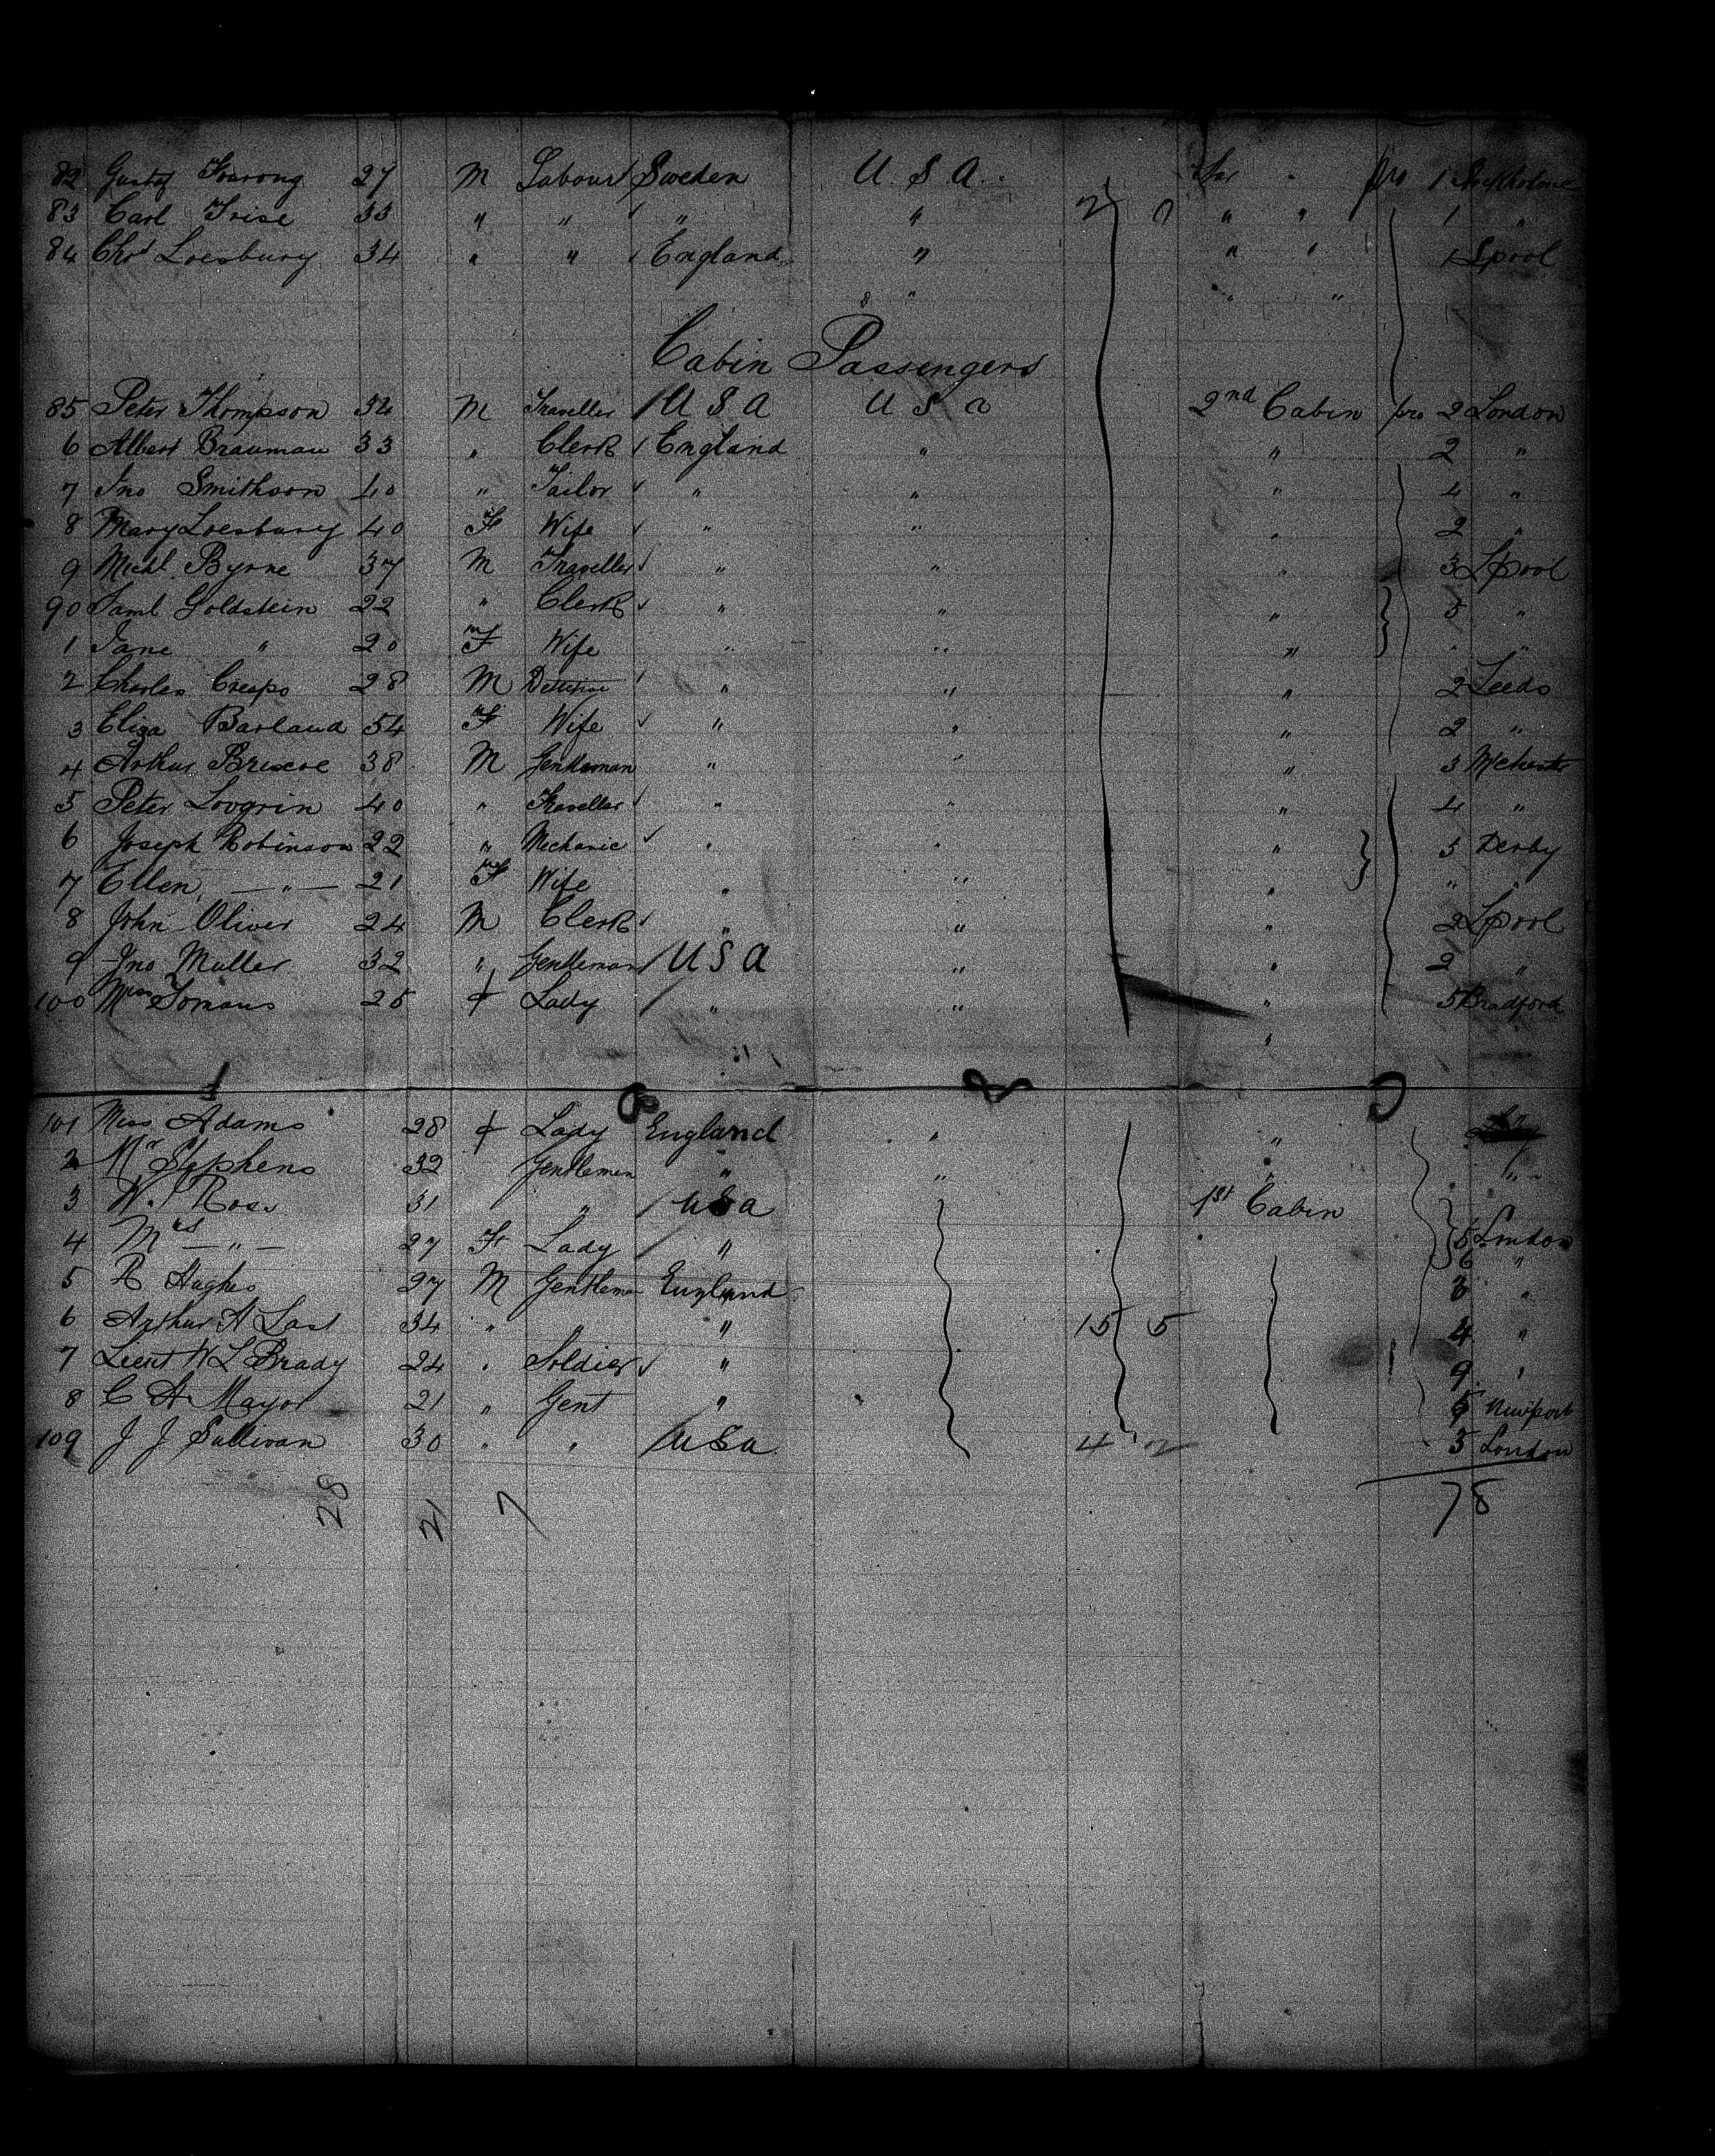 82 Gustaf 27 M Labour Sweden U.S.A. pro 1 Stockholme
83 Carl Frise 33 " " " " 2 0 " " 1 "
84 Chs Loesbury 34 " " England " " " 1 Lpool
" " " "
Cabin Passengers
85 Peter Thompson 34 M Traveller U S A U S a 2nd Cabin pro 2 London
6 Albert Brauman 33 " Clerk England " " 2 "
7 Jno Smithson 40 " Tailor " " " 4 "
8 Mary Loesbury 40 F Wife " " " 2 "
9 Michl Byrne 37 M Traveller " " " 3 Lpool
90 Saml Goldstein 22 " Clerk " " " 5 "
1 Jane " 20 m F Wife " " " " "
2 Charles Crespo 28 M " " " 2 Leeds
3 Eliza Barland 54 F Wife " " " 2 "
4 Arthur Briscoe 38 M Gentleman " " " 3 Mchester
5 Peter Lovgrin 40 " Traveller " " " 4 "
6 Joseph Robinson 22 " Mechanic " " " 5 Derby
7 Ellen — " — 21 m F Wife " " " " "
8 John Oliver 24 M Clerk " " " 2 Lpool
9 Jno Muller 32 " Gentleman U S A " " 2 "
100 Miss Tomans 25 f Lady " " " 5 Bradford
"
101 Miss Adams 28 f Lady England " "
2 Mr Stephens 32 Gentleman " " " "
3 W. Ross 31 " USa 1st Cabin
4 Mrs — " — 27 F Lady " 5 London
6 "
5 R Hughes 27 M Gentleman England 3 "
6 Arthur A Last 34 " " " 15 5 4 "
7 Lieut W L Brady 24 " Soldier " 9 "
8 C A Mayor 21 " Gent " 5 Newport
109 J J Sullivan 30 " " USa 4 2 3 London
28 21 7 78